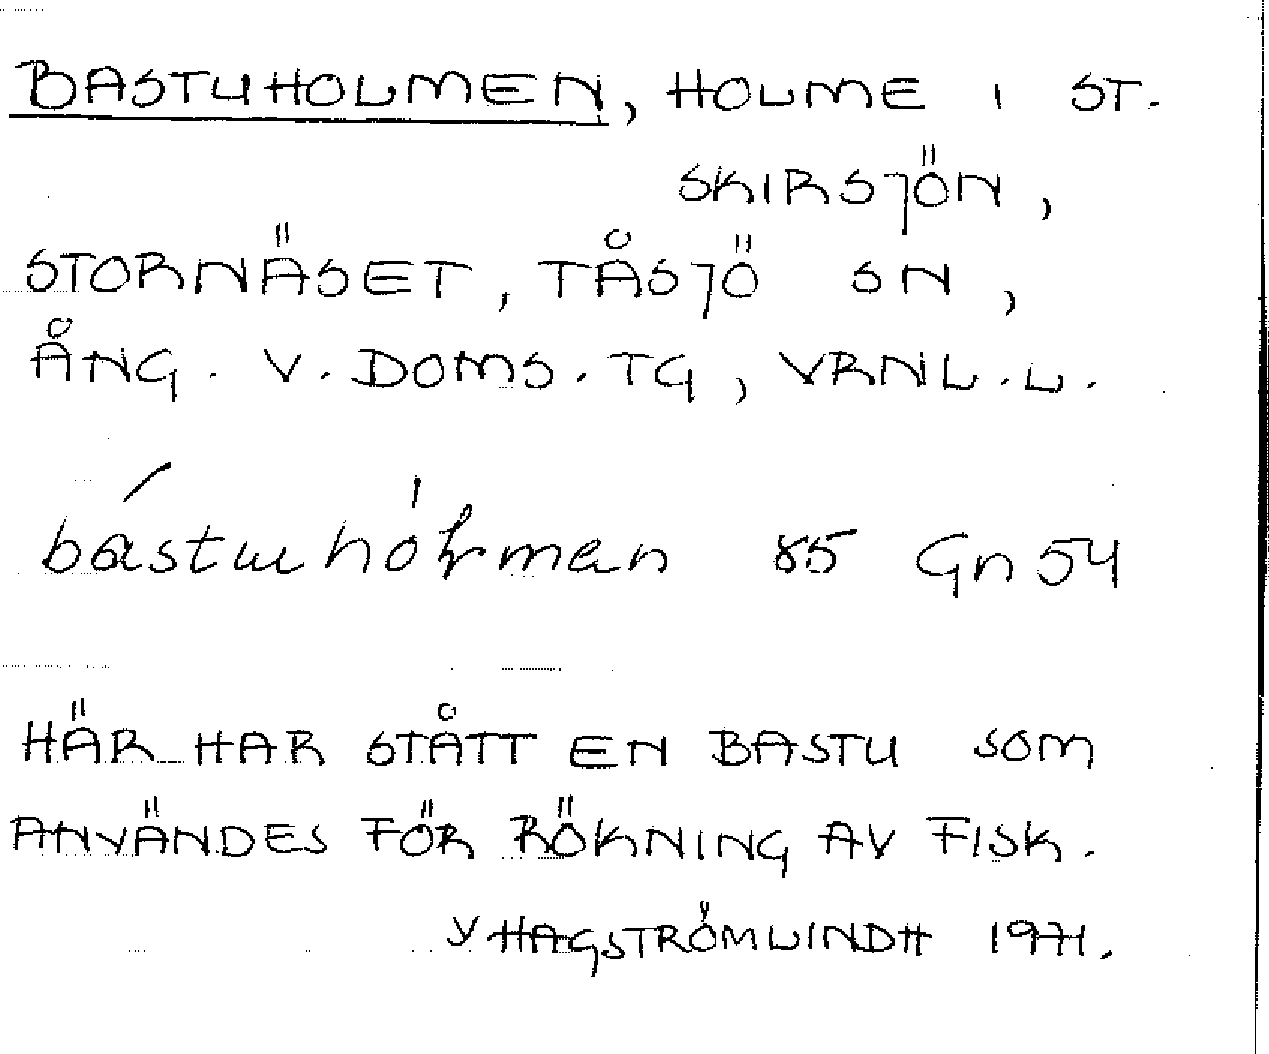 BASTUHOLMEN, HOLME I ST.
SKIRSJÖN,
STORNÄSET, TÅSJÖ SN,
ÅNG. V. DOMS. TG, VRNL. L.
bástuhóɫmen 85 Gn 54
HÄR HAR STÅTT EN BASTU SOM
ANVÄNDES FÖR RÖKNING AV FISK.
Y HAGSTRÖMLINDH 1971.